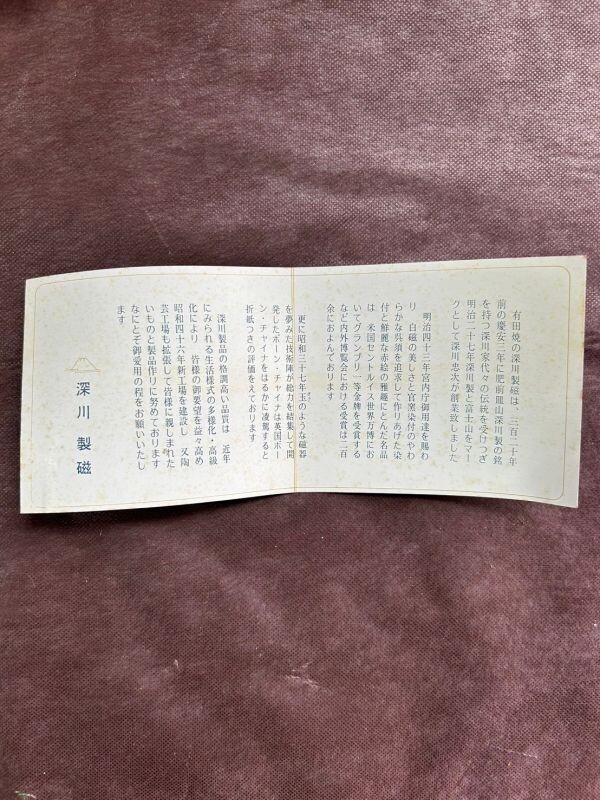 有田焼の深川製磁は、三百二十年
前の慶安三年に肥前皿山深川製の銘
を持つ深川家代々の伝統を受けつぎ
明治二十七年深川製と富士山をマー
クとして深川忠次が創業致しました
明治四十三年宮内庁御用達を賜わ
り 白磁の美しさと官窯染付のやわ
らかな呉須を追求して作りあげた染
付と鮮麗な赤絵の雅趣にとんだ名品
は 米国セントルイス世界万博にお
いてグランプリ一等金牌を受賞する
など内外博覧会における受賞は二百
余におよんでおります
更に昭和三十七年玉のような磁器
を夢みた技術陣が総力を結集して開
発したボーン・チャイナは英国ボー
ン・チャイナをはるかに凌駕すると
折紙つきの評価をえております
深川製品の格調高い品質は 近年
にみられる生活様式の多様化 高級
化により 皆様の御要望を益々高め
昭和四十六年新工場を建設し 又陶
芸工場も拡張して皆様に親しまれた
いものと製品作りに努めております
なにとぞ御愛用の程をお願いいたし
ます
深川製磁